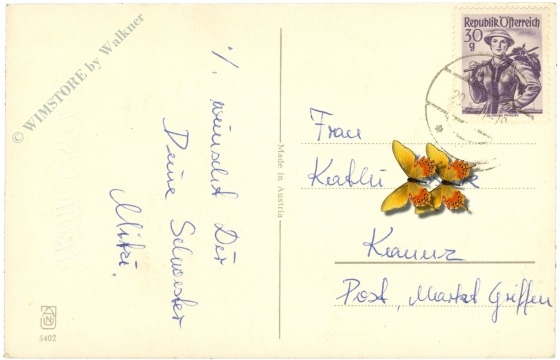 © WIMSTORE by Walkner
%, wünscht Dir
Deine Schwester
Mitzi.
Made in Austria
Republik Österreich
30
g
29
Frau
Kathi
Post, Markt Griffen
5492